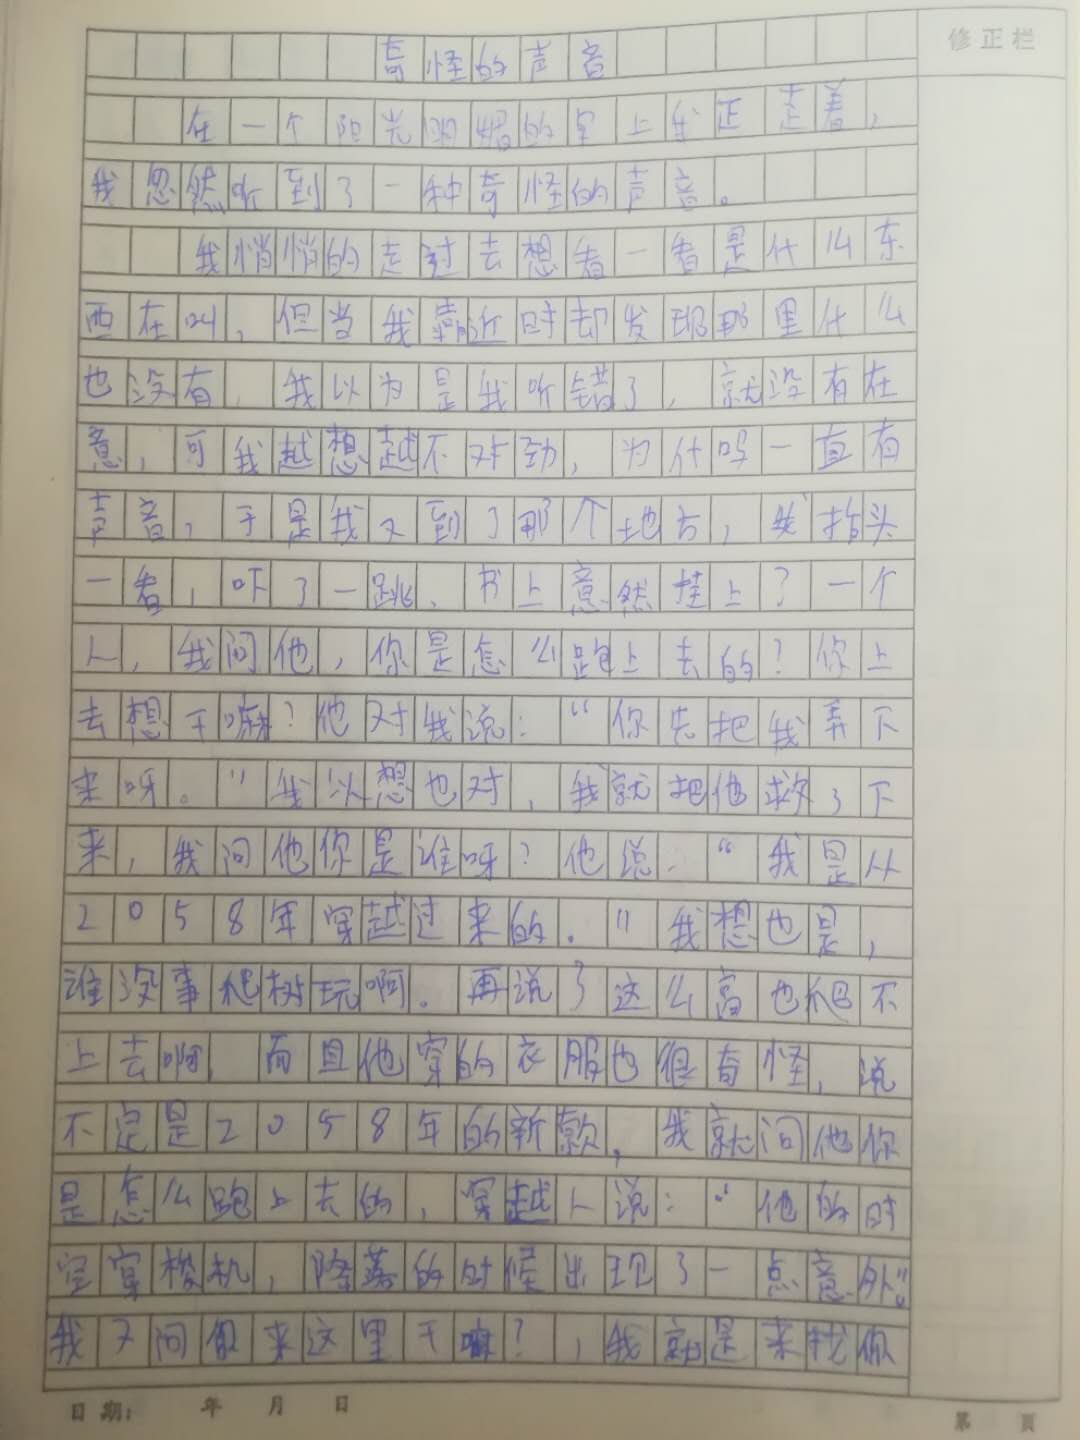 修正栏
奇怪的声音
在一个阳光明媚的早上我正走着，
我忽然听到了一种奇怪的声音。
我悄悄的走过去想看一看是什么东
西在叫，但当我靠近时却发现那里什么
也没有，我以为是我听错了，就没有在
意，可我越想越不对劲，为什吗一直有
声音，于是我又到了那个地方，我抬头
一看，吓了一跳，书上意然挂上了一个
人，我问他，你是怎么跑上去的？你上
去想干嘛？他对我说：“你先把我弄下
来呀。”我以想也对，我就把他救了下
来，我问他你是谁呀？他说：“我是从
2058年穿越过来的。”我想也是，
谁没事爬树玩啊。再说了这么高也爬不
上去啊，而且他穿的衣服也很奇怪，说
不定是2058年的新款，我就问他你
是怎么跑上去的，穿越人说：“他的时
空穿梭机，降落的时候出现了一点意外”。
我又问你来这里干嘛？，我就是来找你
日期： 年 月 日
第 页